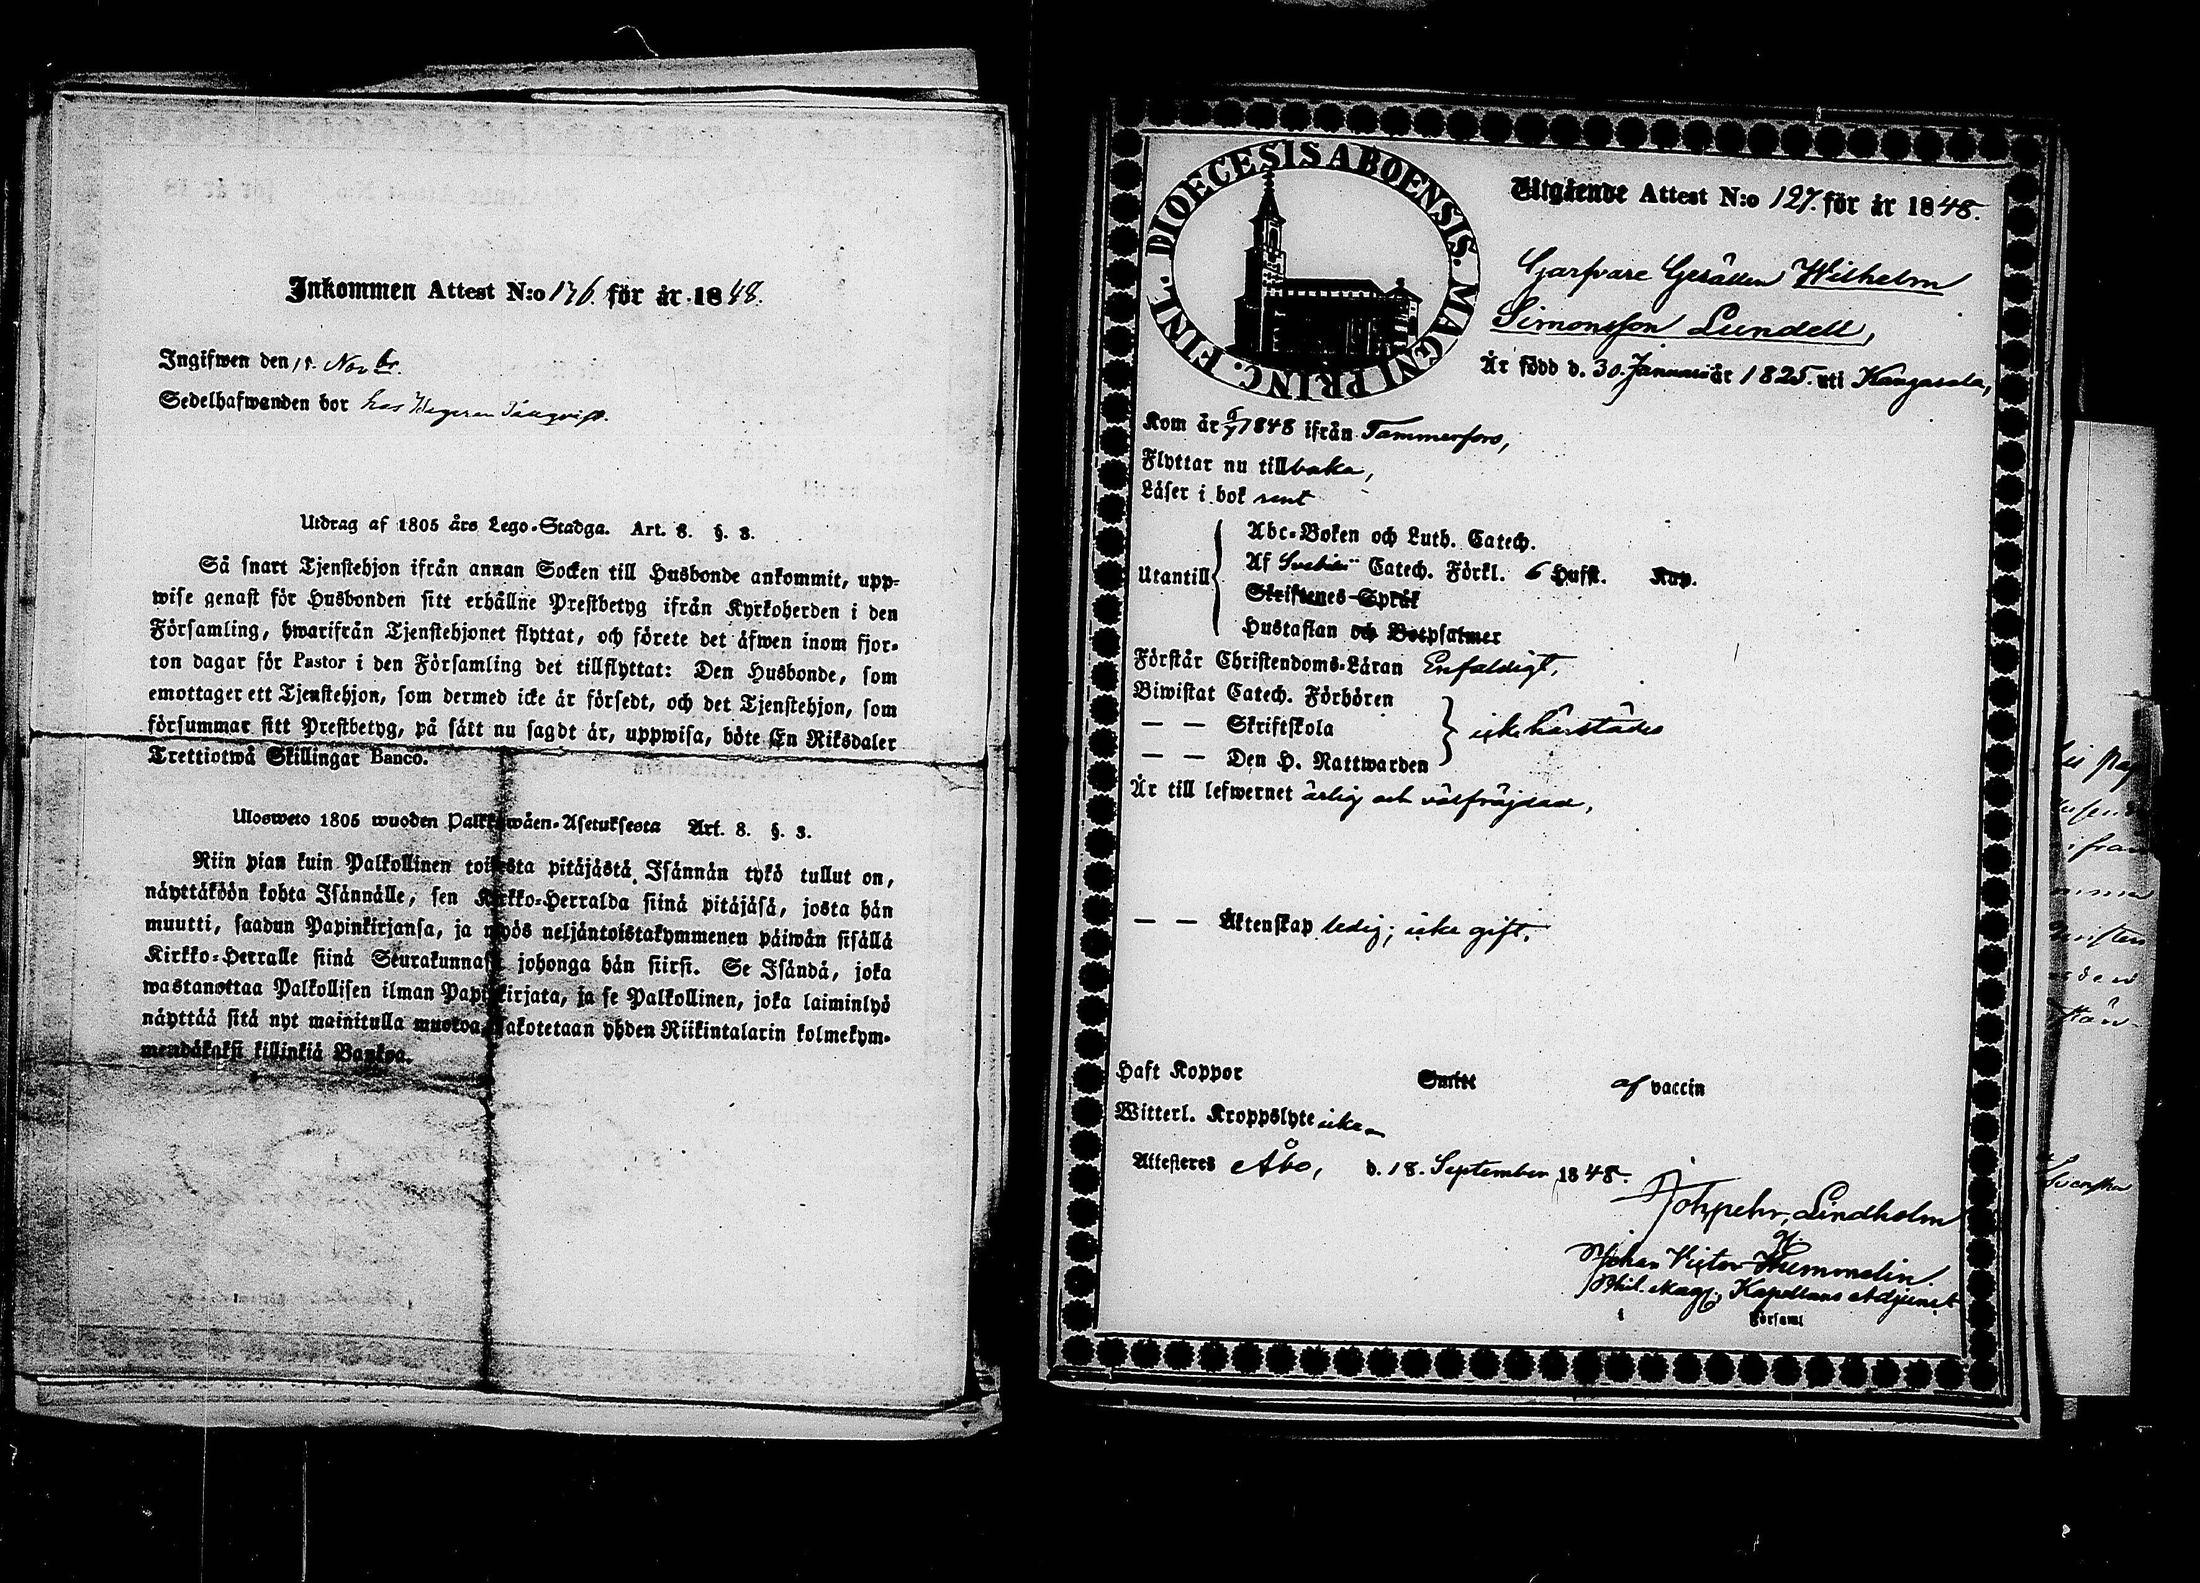 Inkommen Attest N:o 136. för år 1848.
Ingifwen den 15. Novbr.
Sedelhafwanden bor hos
Utdrag af 1805 års Lego-Stadga. Art. 8. §. 3.
Så snart Tjenstehjon ifrån annan Socken till Husbonde ankommit, upp-
wise genast för Husbonden sitt erhållne Prestbetyg ifrån Kyrkoherden i den
Församling, hwarifrån Tjenstehjonet flyttat, och förete det äfwen inom fjor-
ton dagar för Pastor i den Församling det tillflyttat: Den Husbonde, som
emottager ett Tjenstehjon, som dermed icke är försedt, och det Tjenstehjon, som
försummar sitt Prestbetyg, på sätt nu sagdt är, uppwisa, böte En Riksdaler
Trettiotwå Skillingar Banco.
Ulosweto 1805 wuoden Palkkawäen-Asetuksesta Art. 8. §. 3.
Niin pian kuin Palkollinen toisesta pitäjästä Isännän tykö tullut on,
näyttäköön kohta Isännälle, sen Kirkko-Herralda siinä pitäjäsä, josta hän
muutti, saadun Papinkirjansa, ja myös neljäntoistakymmenen päiwän sisällä
Kirkko-Herralle siinä Seurakunnasa johonga hän siirsi. Se Isändä, joka
wastanottaa Palkollisen ilman Papinkirjata, ja se Palkollinen, joka laiminlyö
näyttää sitä nyt mainitulla muotoa, sakotetaan yhden Riikintalarin kolmekym-
mendäkaksi killinkiä Bankoa.
DIOECESIS ABOENSIS. MAGNI PRINC. FINL.
Utgående Attest N:o 127. för år 1848.
Garfvare Gesällen Wilhelm
Simonsson Lundell,
Är född d. 30. Januari år 1825. uti Kangasala,
Kom år 9/7 1848 ifrån Tammerfors,
Flyttar nu tillbaka,
Läser i bok rent
Utantill
Abc-Boken och Luth. Catech.
Af Svebilii Catech. Förkl. 6 Hufst. Kap.
Skriftenes-Språk
Hustaflan och Botpsalmer
Förstår Christendoms-Läran Enfaldigt,
Biwistat Catech. Förhören
— — Skriftskola
icke härstädes
— — Den H. Nattwarden
Är till lefwernet ärlig och välfräjdad,
— — Äktenskap ledig; icke gift,
Haft Koppor Smitt af vaccin
Witterl. Kroppslyte icke
Attesteres Åbo, d. 18. September 1848.
Lindholm
Johan Victor Hummelin.
Phil. Mag., Kapellans Adjunct
i Församl